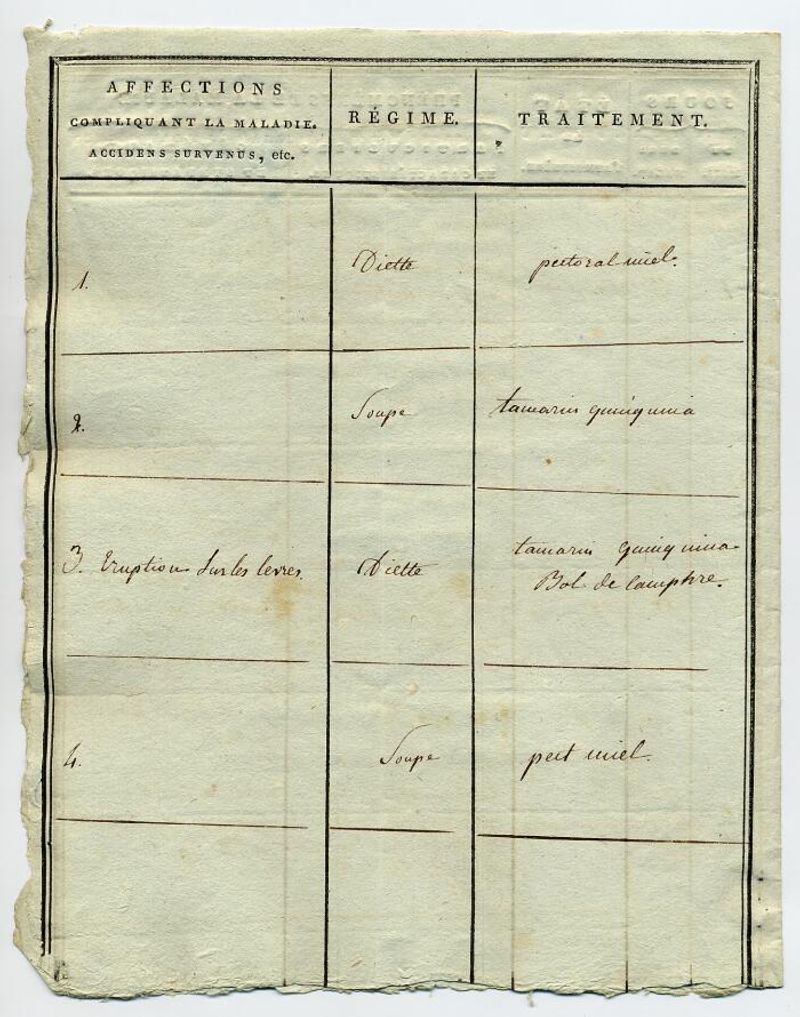 AFFECTIONS
COMPLIQUANT LA MALADIE.
ACCIDENS SURVENUS, etc.
RÉGIME.
TRAITEMENT.
1.
Diette
pectoral miel.
2.
Soupe
tamarin quinquina
3. Eruption sur les levres.
Diette
tamarin quinquina
Bol de camphre.
4.
Soupe
pect miel.